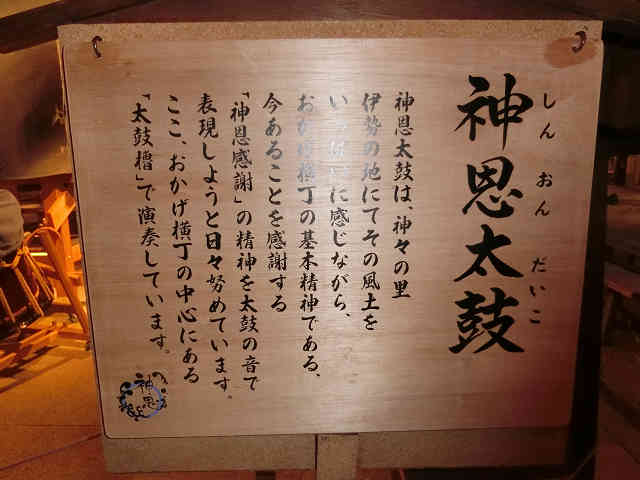 神恩太鼓
しん おん だいこ
神恩太鼓は、神々の里
伊勢の地にてその風土を
いっぱいに感じながら、
おかげ横丁の基本精神である、
今あることを感謝する
「神恩感謝」の精神を太鼓の音で
表現しようと日々努めています。
ここ、おかげ横丁の中心にある
「太鼓櫓」で演奏しています。
神恩